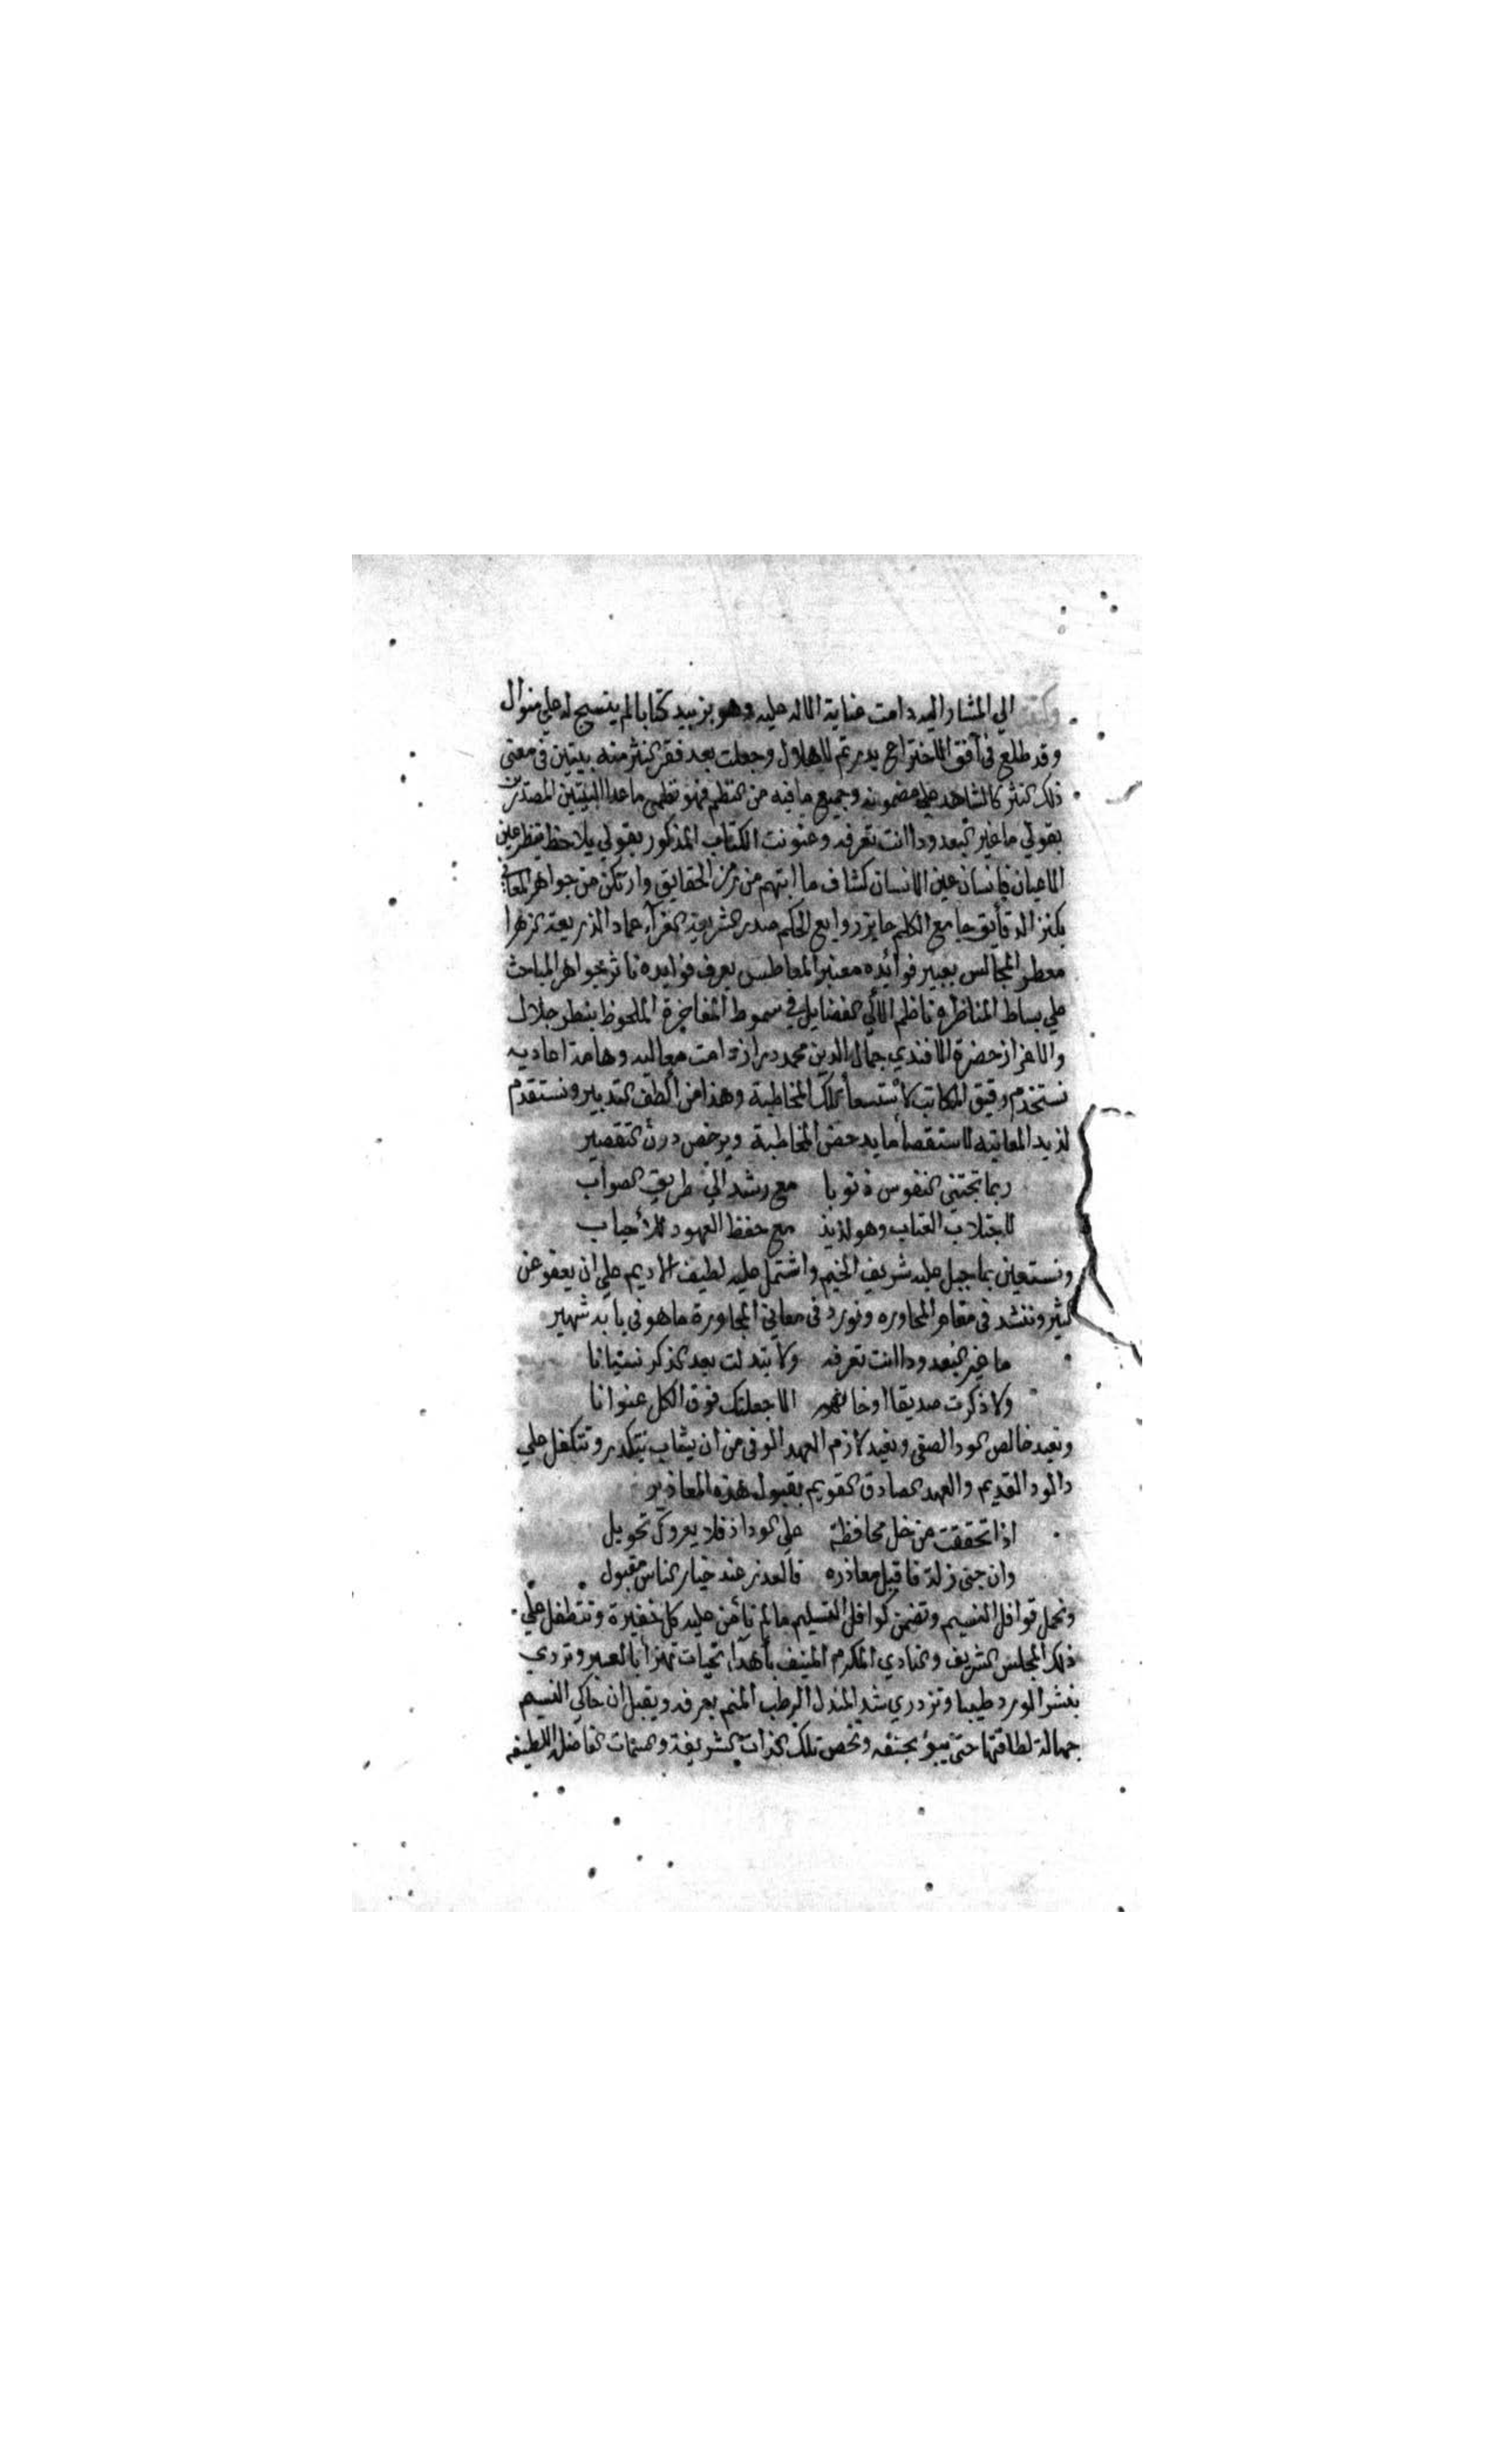 وكتبت الي المشار اليه دامت عناية الاله عليه وهو بزبيد كتابا لم ينسج له علي منوال
وقد طلع في آفق الاختراع بدر تم للهلال وجعلت بعد فقر النثر منه بيتين في معني
ذلك النثر كالشاهد علي مضمونه وجميع ما فيه من النظم فهو نظمي ما عدا البيتين المصدرين
بقولي ما غير البعد ودا انت تعرفه وعنونت الكتاب المذكور بقولي يلاحظ بنظر عين
الاعيان فانسان عين الانسان كشاف ما ابتهم من رمز الحقايق وارتكن من جواهر المعاني
بكنز الدقأيق جامع الكلم حايز روايع الحكم صدر الشريعة الغرآء عماد الذريعة الزهرا
معطر المجالس بعبير فوائده معنبر المعاطس بعرف فوايده ناثر جواهر المباحث
علي بساط المناظره ناظم لآلي الفضايل في سموط المفاخرة الملحوظ بنظر جلال
والاعزاز حضرة الافندي جمال الدين محمد دراز دامت معاليه وهامة اعاديه
نستخدم رقيق المكاتب لاستسعأ تلك المخاطبة وهذا من ألطف التدبير ونستقدم
لذيد المعاتبه لاستقصأ ما يدحض المخاطبة ويرخص درن التقصير
ربما تجتني النفوس ذنوبا مع رشد الي طريق الصواب
لاجتلاب العتاب وهو لذيذ مع حفظ العهود للأحباب
ونستعين بما جبل عليه شريف الخيم واشتمل عليه لطيف الاديم علي ان يعفو عن
كثير وننشد في مقام المحاوره ونورد في معاني المجاورة ما هو في بابه شهير
ما غير البعد ودا انت تعرفه ولا تبدلت بعد الذكر نسيانا
ولا ذكرت صديقا اوخا الا جعلتك فوق الكل عنوانا
ونعيد خالص الود الصفي ونعيد لازم العهد الوفي من ان يشاب بتكدر ونتكفل علي
دالود القديم والعهد الصادق القويم بقبول هذه المعاذير
اذا تحققت من خل محافظة علي الوداد فلا يعروك تحويل
وان جني زلة فاقبل معاذره فالعذر عند خيار الناس مقبول
ونحمل قوافل النسيم وتضمن كوافل التسليم ما لم تأمن عليه كل خفيرة ونتطفل علي
ذلك المجلس الشريف والنادي المكرم المنيف بأهدآء تحيات تهزأ بالعبير وتزدي
بنشر الورد طيبا وتزدري شد المندل الرطب المنم بعرفه ويقبل ان حاكي النسيم
جهالة لطافتها حتي يبوء بحتفه وتخص تلك الذات الشريفة والسمات الفاضلة اللطيفه